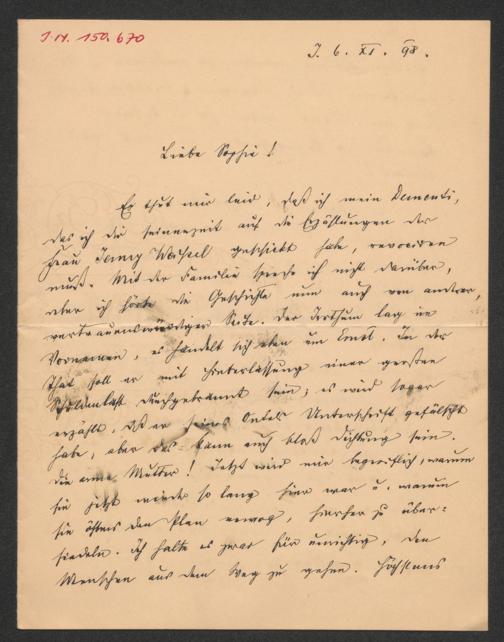 J.N. 150.670
I. 6. XI. 98.
Liebe Sophie!
Es thut mir leid, daß ich mein Dementi,
das ich dir seinerzeit auf die Erzählungen der
Frau Jenny geschickt habe, revociren
muß. Mit der Familie spreche ich nicht darüber,
aber ich hörte die Geschichte nun auch von anderer,
vertrauenswürdiger Seite. Der Irrthum lag im
Vornamen, es handelt sich eben um Ernst. In der
That soll er mit Hinterlassung einer großen
Schuldenlast durchgebrannt sein; es wird sogar
erzählt, daß er seines Onkels Unterschrift gefälscht
habe, aber das kann auch bloß Dichtung sein.
Die arme Mutter! Jetzt wird mir begreiflich, warum
sie jetzt wieder so lang hier war u. warum
sie öfters den Plan erwog, hierher zu über=
siedeln. Ich halte es zwar für unrichtig, den
Menschen aus dem Weg zu gehen. Höchstens